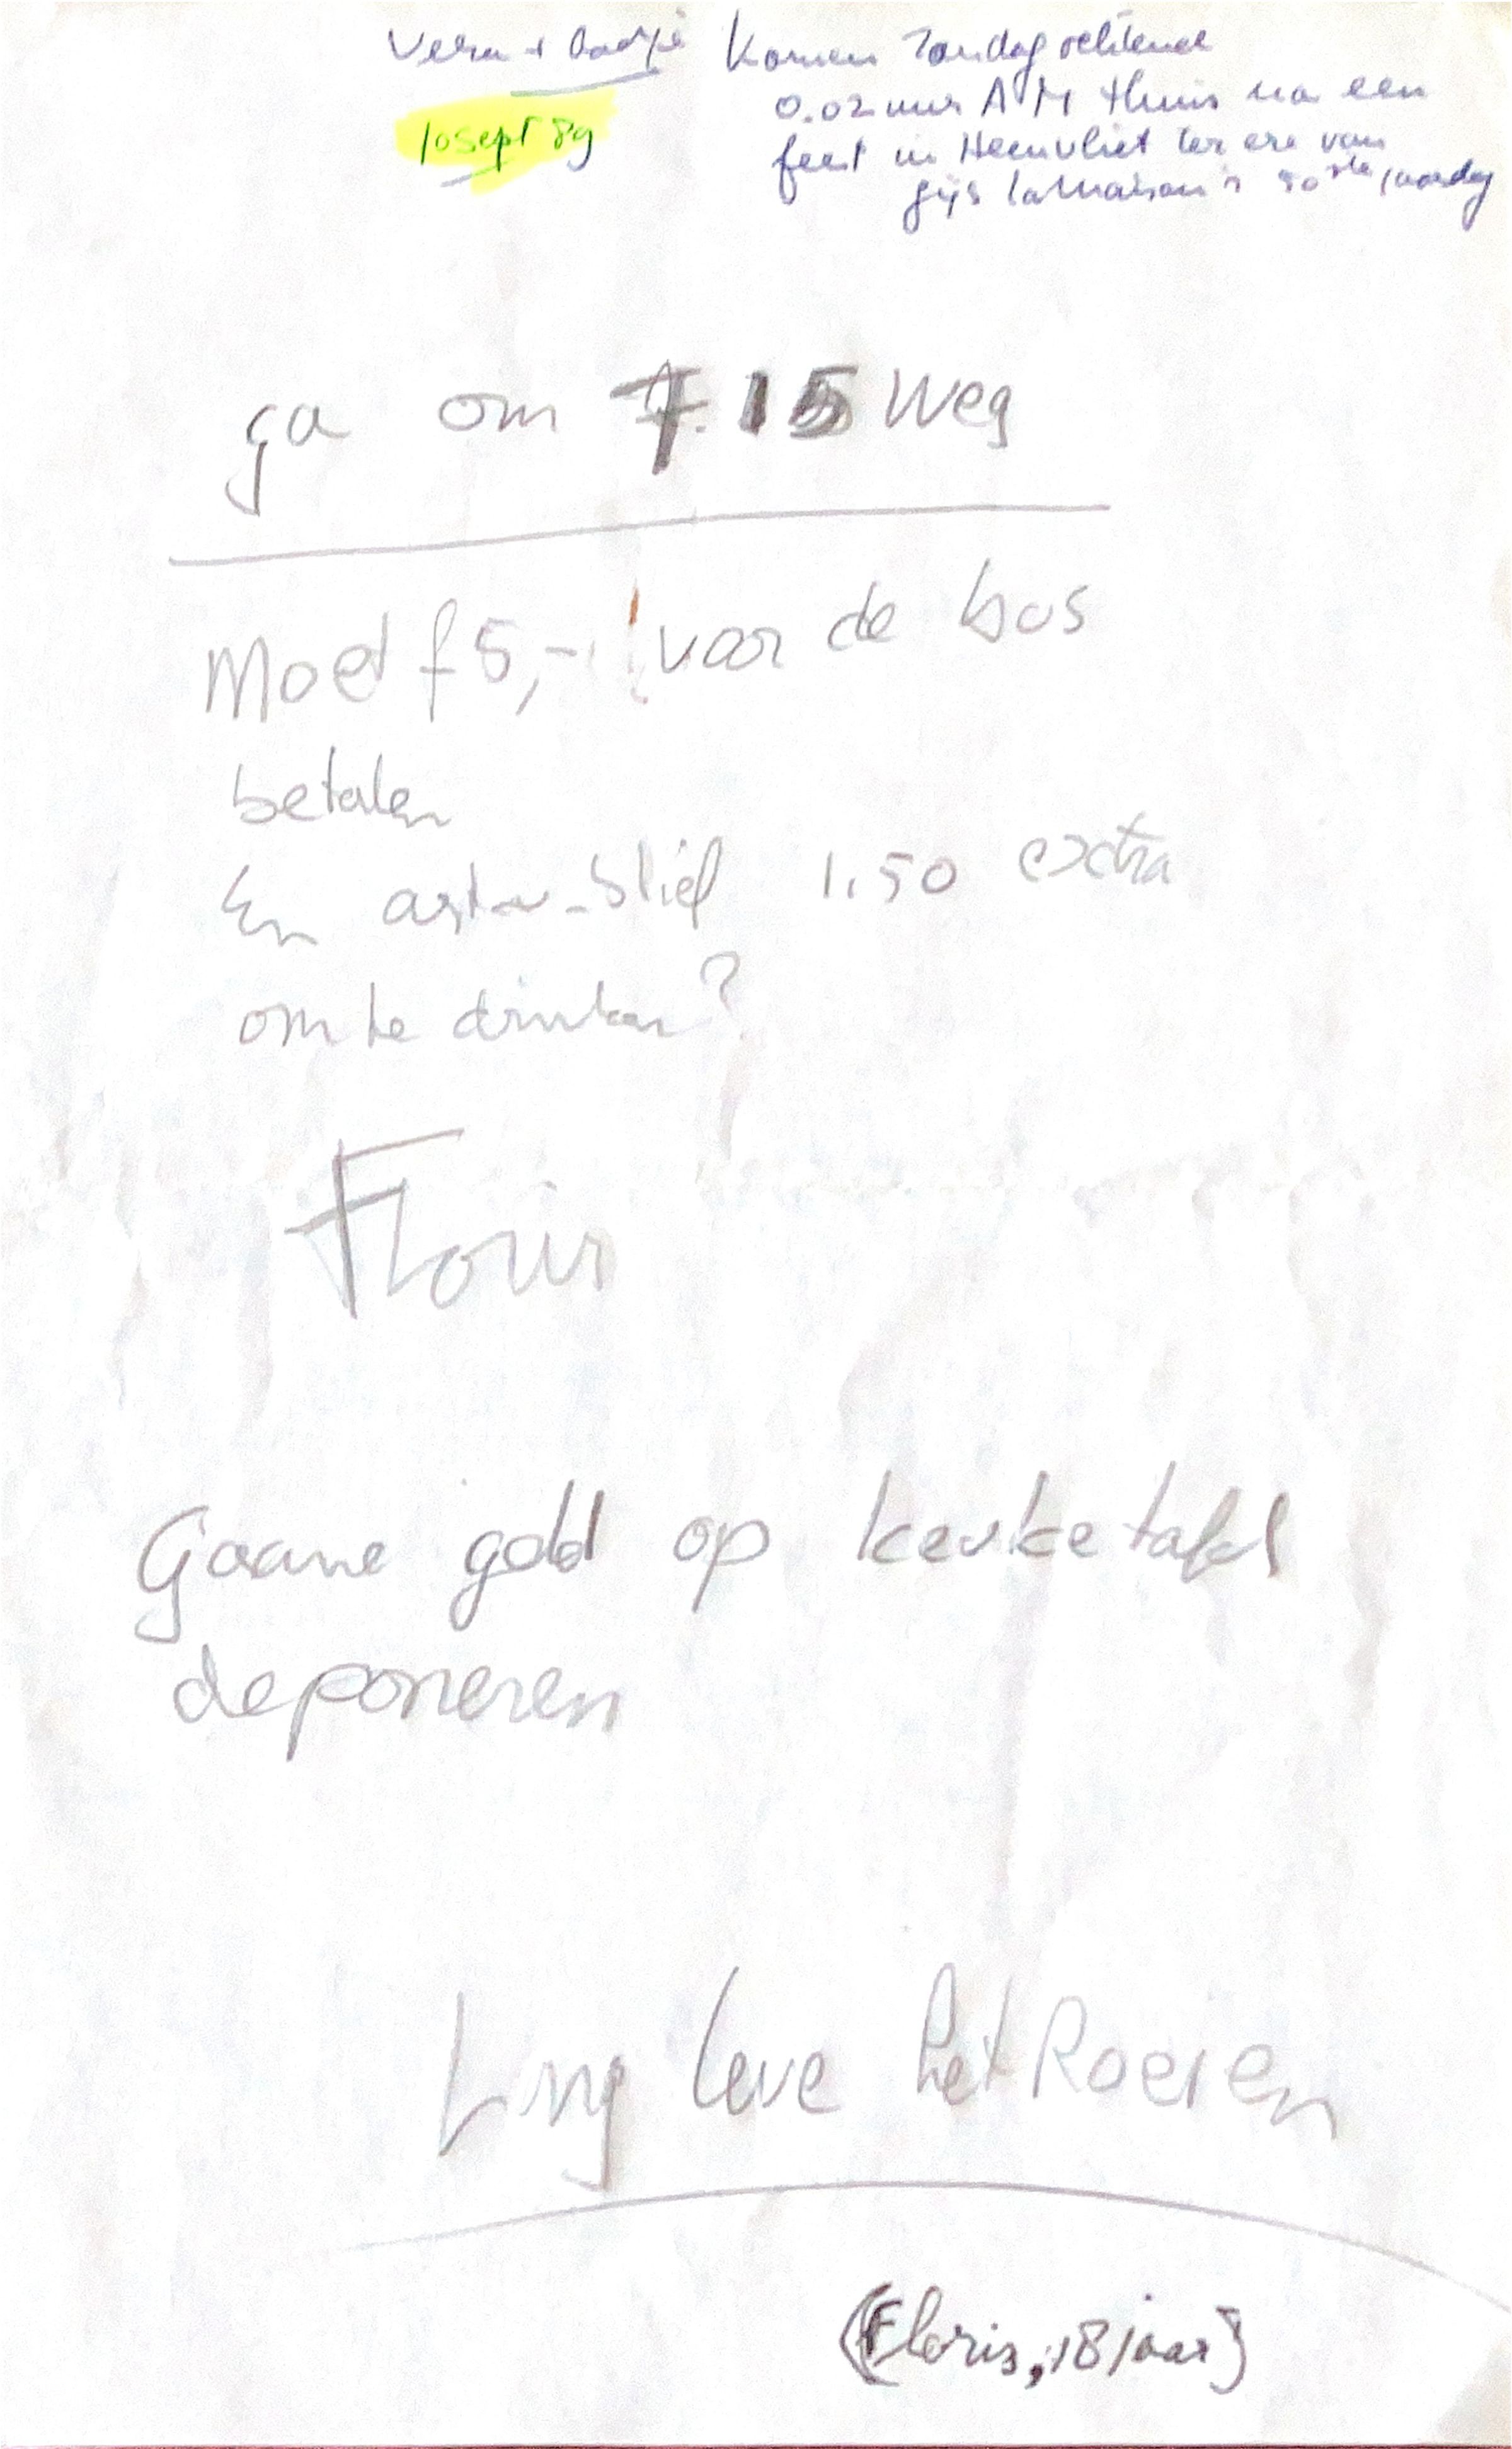 Vera + Aadje komen zondagochtend
0.02 uur AM thuis na een
10 sept 89
feest in Heenvliet ter ere van
Gijs laMaison's 50ste jaardag
ga om 7.15 weg
Moet f 5,- voor de bus
betalen
En astu-blief 1.50 extra
om te drinken?
Floris
Gaarne geld op keuketafel
deponeren
Lang leve het Roeien
(Floris, 18 jaar)